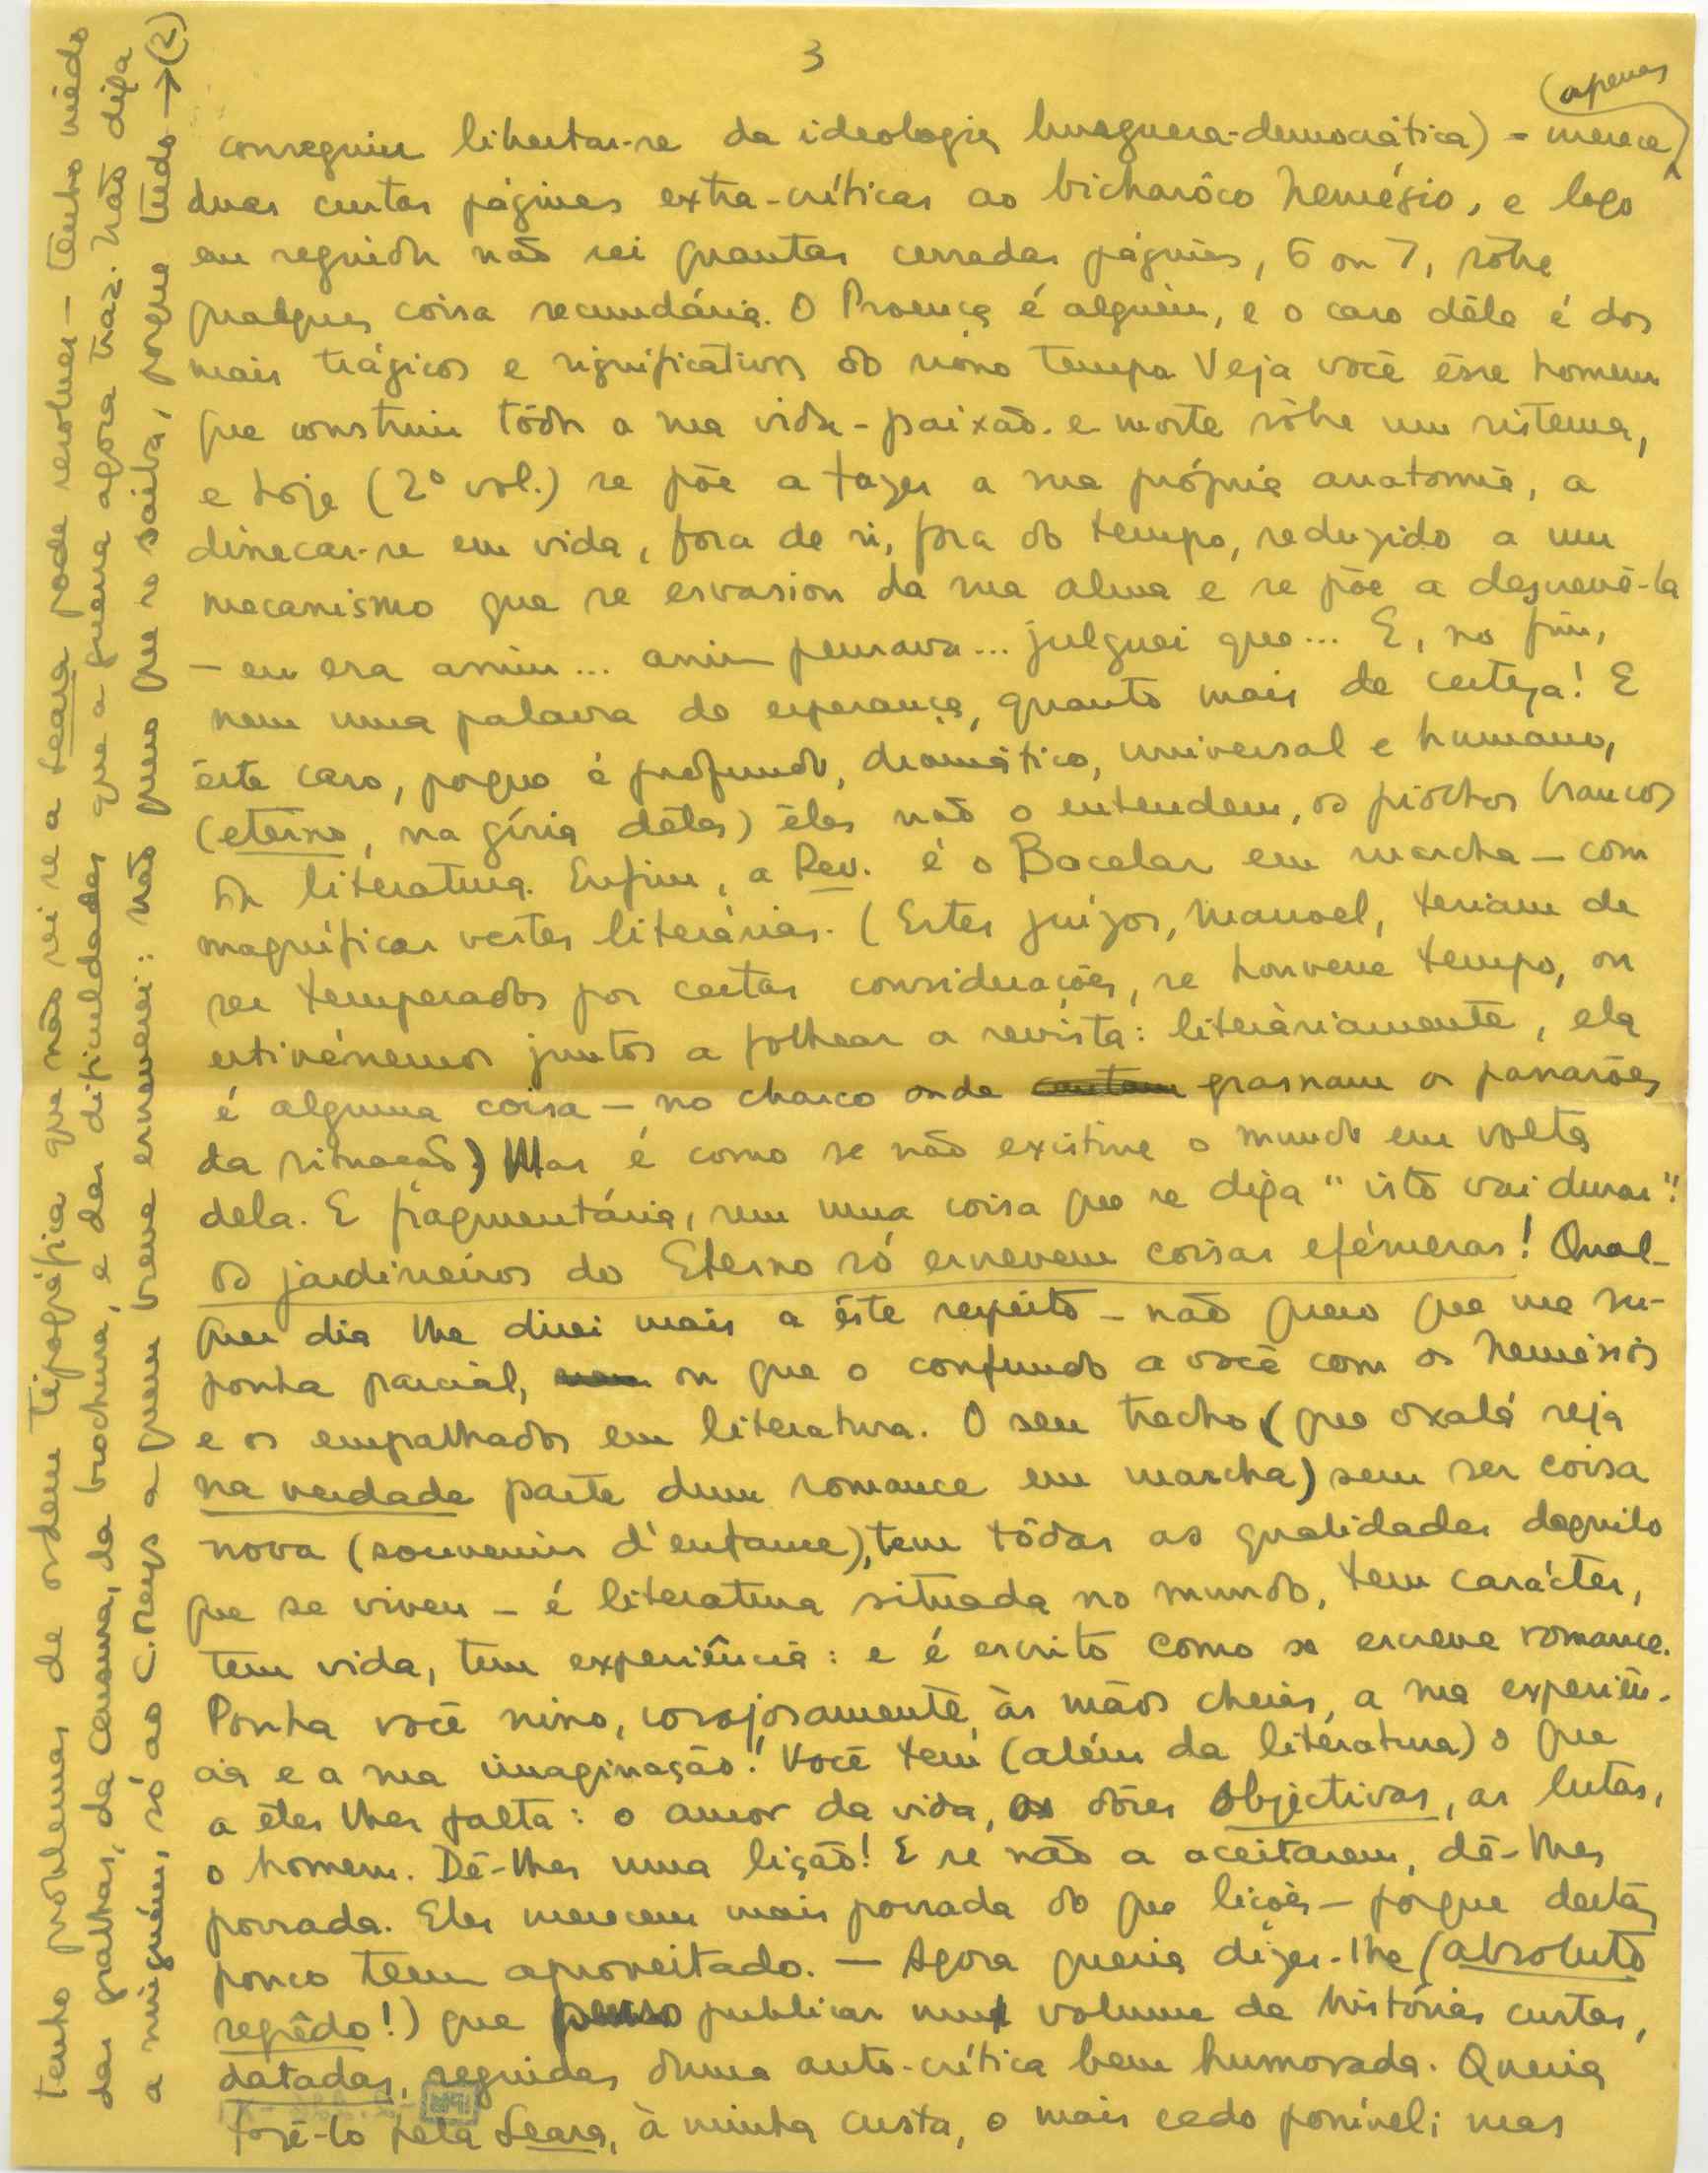 3
(apenas
conseguiu libertar-se da ideologia burguesa-democrática) - merece)
duas curtas páginas extra-críticas ao bicharôco Nemésio, e logo
em seguida não sei quantas cerradas páginas, 6 ou 7, sôbre
qualquer coisa secundária. O Proença é alguém, e o caso dêle é dos
mais trágicos e significativos do nosso tempo. Veja você êsse homem
que construiu tôda a sua vida - paixão e morte sôbre um sistema,
e hoje (2º vol.) se põe a fazer a sua própria anatomia, a
dissecar-se em vida, fora de si, fora do tempo, reduzido a um
mecanismo que se esvasiou da sua alma e se põe a descrevê-la
- eu era assim... assim pensava... julguei que... E, no fim,
nem uma palavra de esperança, quanto mais de certeza! E
êste caso, porque é profundo, dramático, universal e humano,
(eterno, na gíria dêles) êles não o entendem, os piôchos brancos
da literatura. Enfim, a Rev. é o Bacelar em marcha - com
magníficas vestes literárias. (Estes juízos, Manoel, teriam de
ser temperados por certas considerações, se houvesse tempo, ou
estivéssemos juntos a folhear a revista: literàriamente, ela
é alguma coisa - no charco onde cantam grasnam os pavarões
da situação) Mas é como se não existisse o mundo em volta
dela. E fragmentária, sem uma coisa que se diga "isto vai durar".
Os jardineiros do Eterno só escrevem coisas efémeras! Qual-
quer dia lhe direi mais a êste respeito - não quero que me su-
ponha parcial, nem ou que o confundo a você com os Nemésios
e os empalhados em literatura. O seu trecho (que oxalá seja
na verdade parte dum romance em marcha) sem ser coisa
nova (souvenirs d'enfance), tem tôdas as qualidades daquilo
que se viveu - é literatura situada no mundo, tem carácter,
tem vida, tem experiência: e é escrito como se escreve romance.
Ponha você nisso, corajosamente, às mãos cheias, a sua experiên-
cia e a sua imaginação! Você tem (além da literatura) o que
a êles lhes falta: o amor da vida, as dôres objectivas, as lutas,
o homem. Dê-lhes uma lição! E se não a aceitarem, dê-lhes
porrada. Eles merecem mais porrada do que lições - porque destas
pouco teem aproveitado. — Agora queria dizer-lhe (absoluto
segrêdo!) que penso publicar um volume de histórias curtas,
datadas, seguidas duma auto-crítica bem humorada. Queria
fazê-lo pela Seara, à minha custa, o mais cedo possível; mas
tenho problemas de ordem tipográfica que não sei se a Seara pode resolver - tenho mêdo
das gralhas, da Censura, da brochura, e das dificuldades que a guerra agora traz. Não diga
a ninguém, só ao C. Reys a quem breve escreverei: não quero que se saiba, porque tudo → (2)